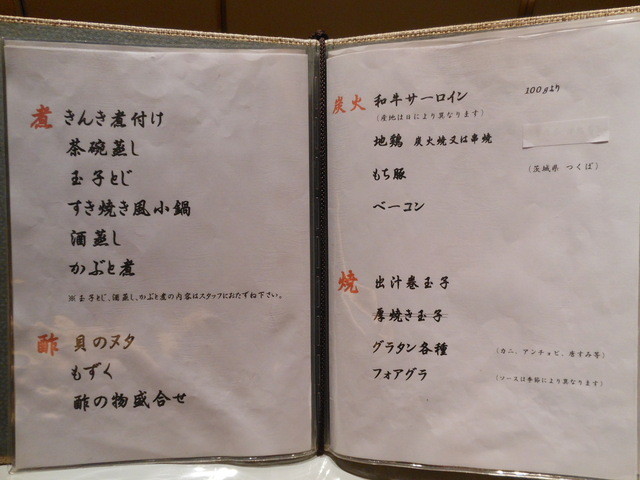 煮 きんき煮付け
茶碗蒸し
玉子とじ
すき焼き風小鍋
酒蒸し
かぶと煮
※玉子とじ、酒蒸し、かぶと煮の内容はスタッフにおたずね下さい。
酢 貝のヌタ
もずく
酢の物盛合せ
炭火 和牛サーロイン 100gより
(産地は日により異なります)
地鶏 炭火焼又は串焼
もち豚 (茨城県 つくば)
ベーコン
焼 出汁巻玉子
厚焼き玉子
グラタン各種 (カニ、アンチョビ、唐すみ等)
フォアグラ (ソースは季節により異なります)